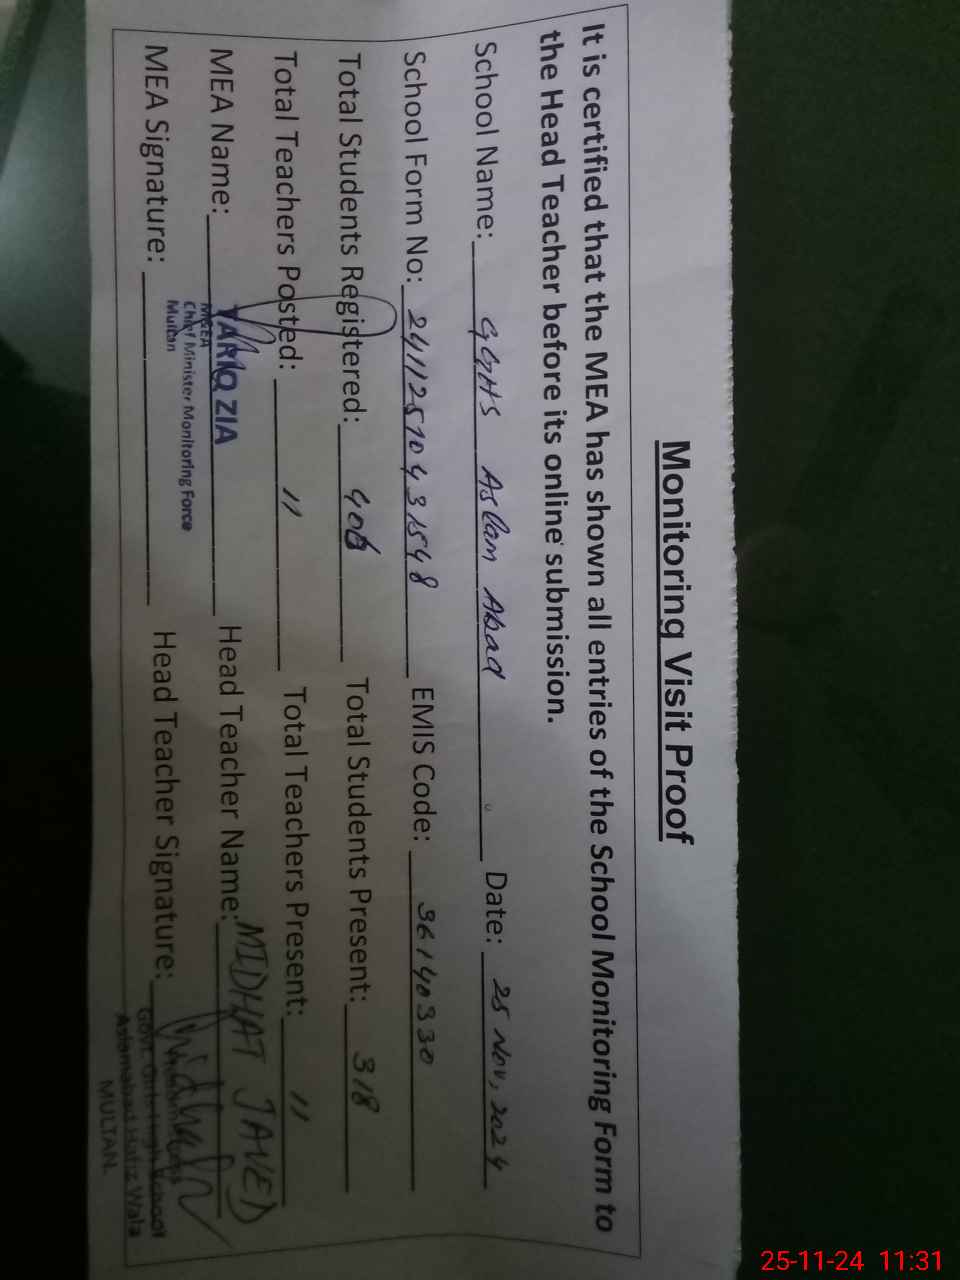 Monitoring Visit Proof
It is certified that the MEA has shown all entries of the School Monitoring Form to
the Head Teacher before its online submission.
School Name: GGHS Aslam Abad Date: 25 Nov, 2024
School Form No: 24112510431548 EMIS Code: 36140330
Total Students Registered: 406 Total Students Present: 318
Total Teachers Posted: 11 Total Teachers Present: 11
MEA Name: TARIQ ZIA Head Teacher Name: MIDHAT JAVED
M&EA
Chief Minister Monitoring Force
Multan
MEA Signature: Head Teacher Signature:
Govt. Girls High School
Aslamabad Hafiz Wala
MULTAN.
25-11-24 11:31